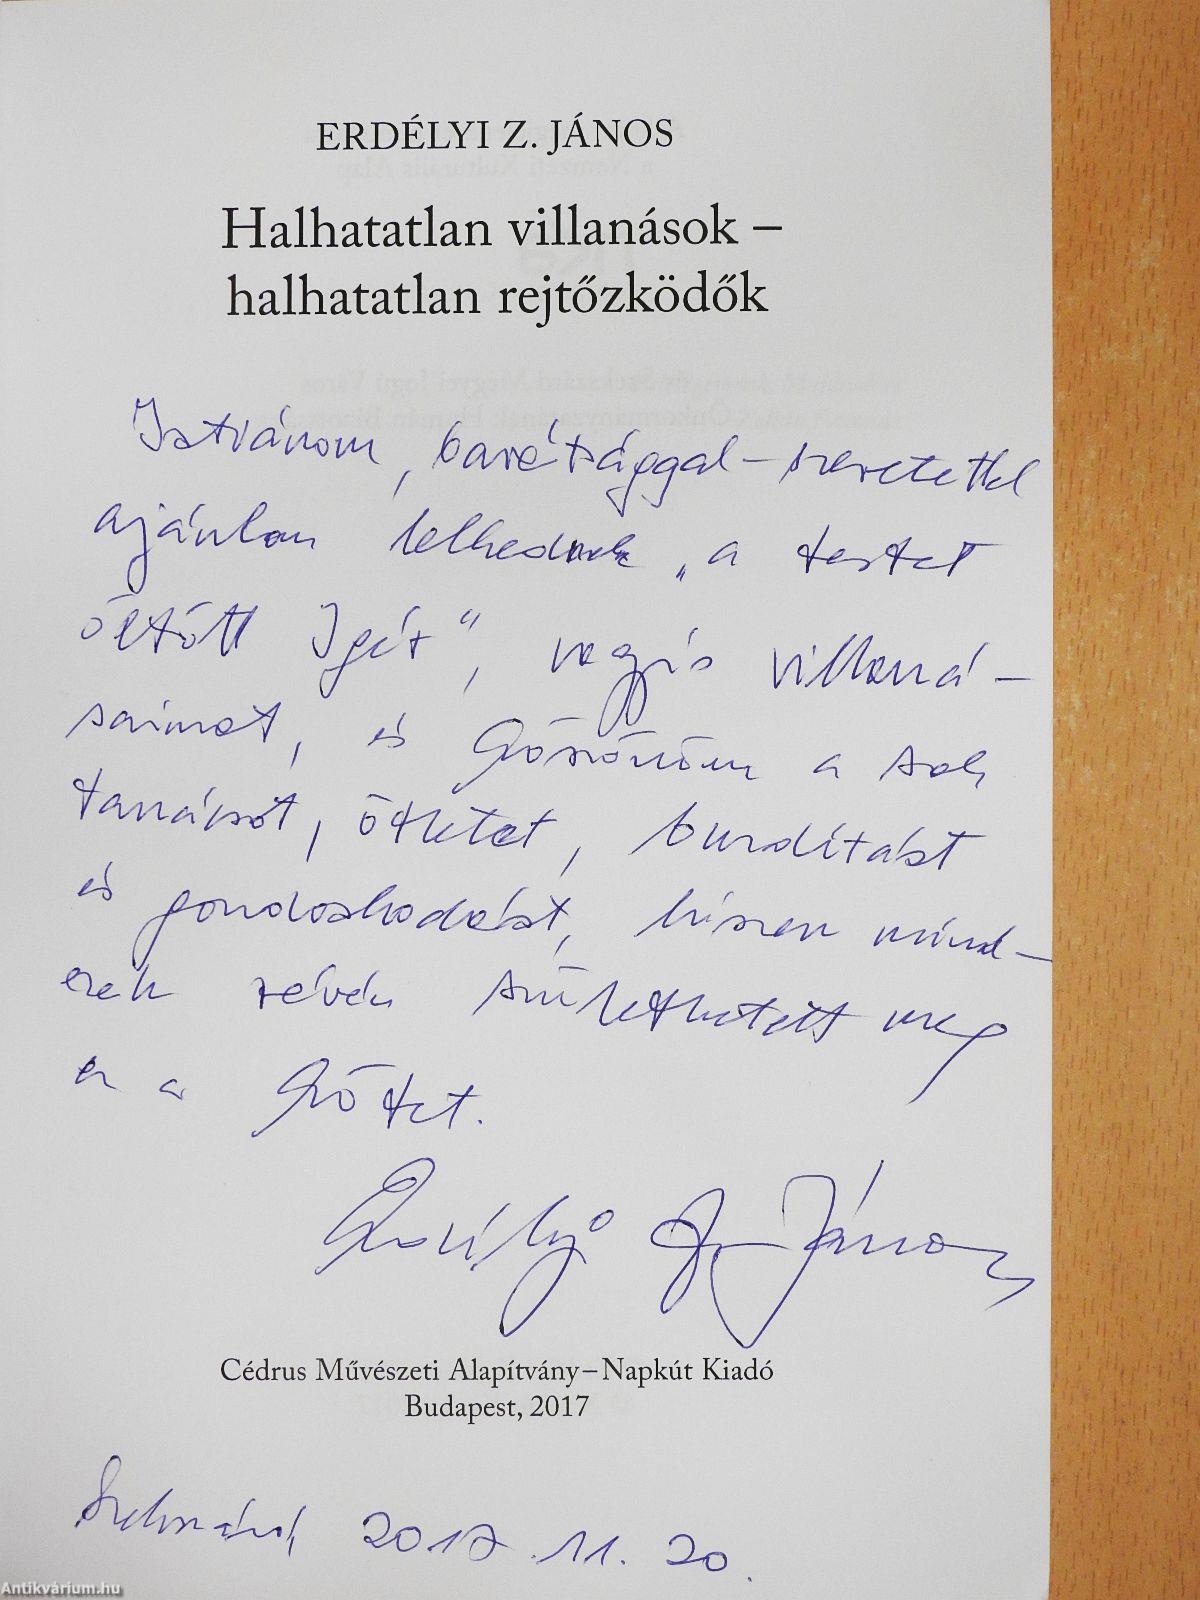 ERDÉLYI Z. JÁNOS
Halhatatlan villanások –
halhatatlan rejtőzködők
Istvánom, barátsággal-szeretettel
ajánlom lelkednek „a testet
öltött Igét", vagyis villaná-
saimat, és köszönöm a sok
tanácsot, ötletet, buzdítást
és gondoskodást, hiszen mind-
ezek révén születhetett meg
ez a kötet.
Erdélyi Z. János
Cédrus Művészeti Alapítvány – Napkút Kiadó
Budapest, 2017
Szekszárd, 2017. 11. 20.
Antikvárium.hu